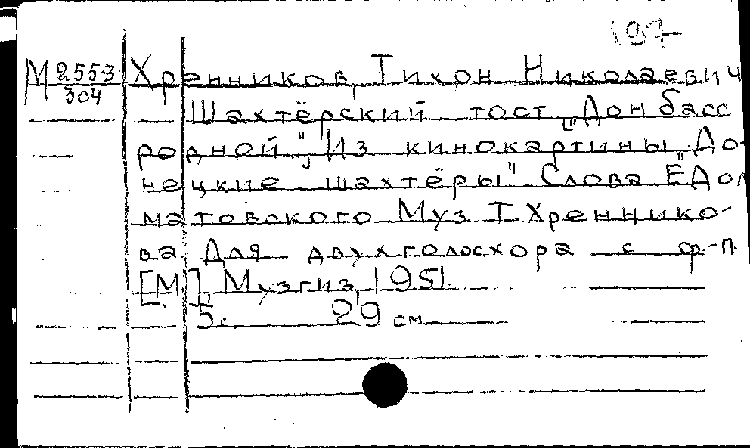 197
М 2553/304 Хренников, Тихон Николаевич
Шахтёрский тост „Донбасс
родной", Из кинокартины „До-
нецкие шахтёры" Слова Е Дол
матовского Муз Т Хреннико-
ва Для двухголосхора с ф-п.
[М], Музгиз, 1951
5 с 29 см